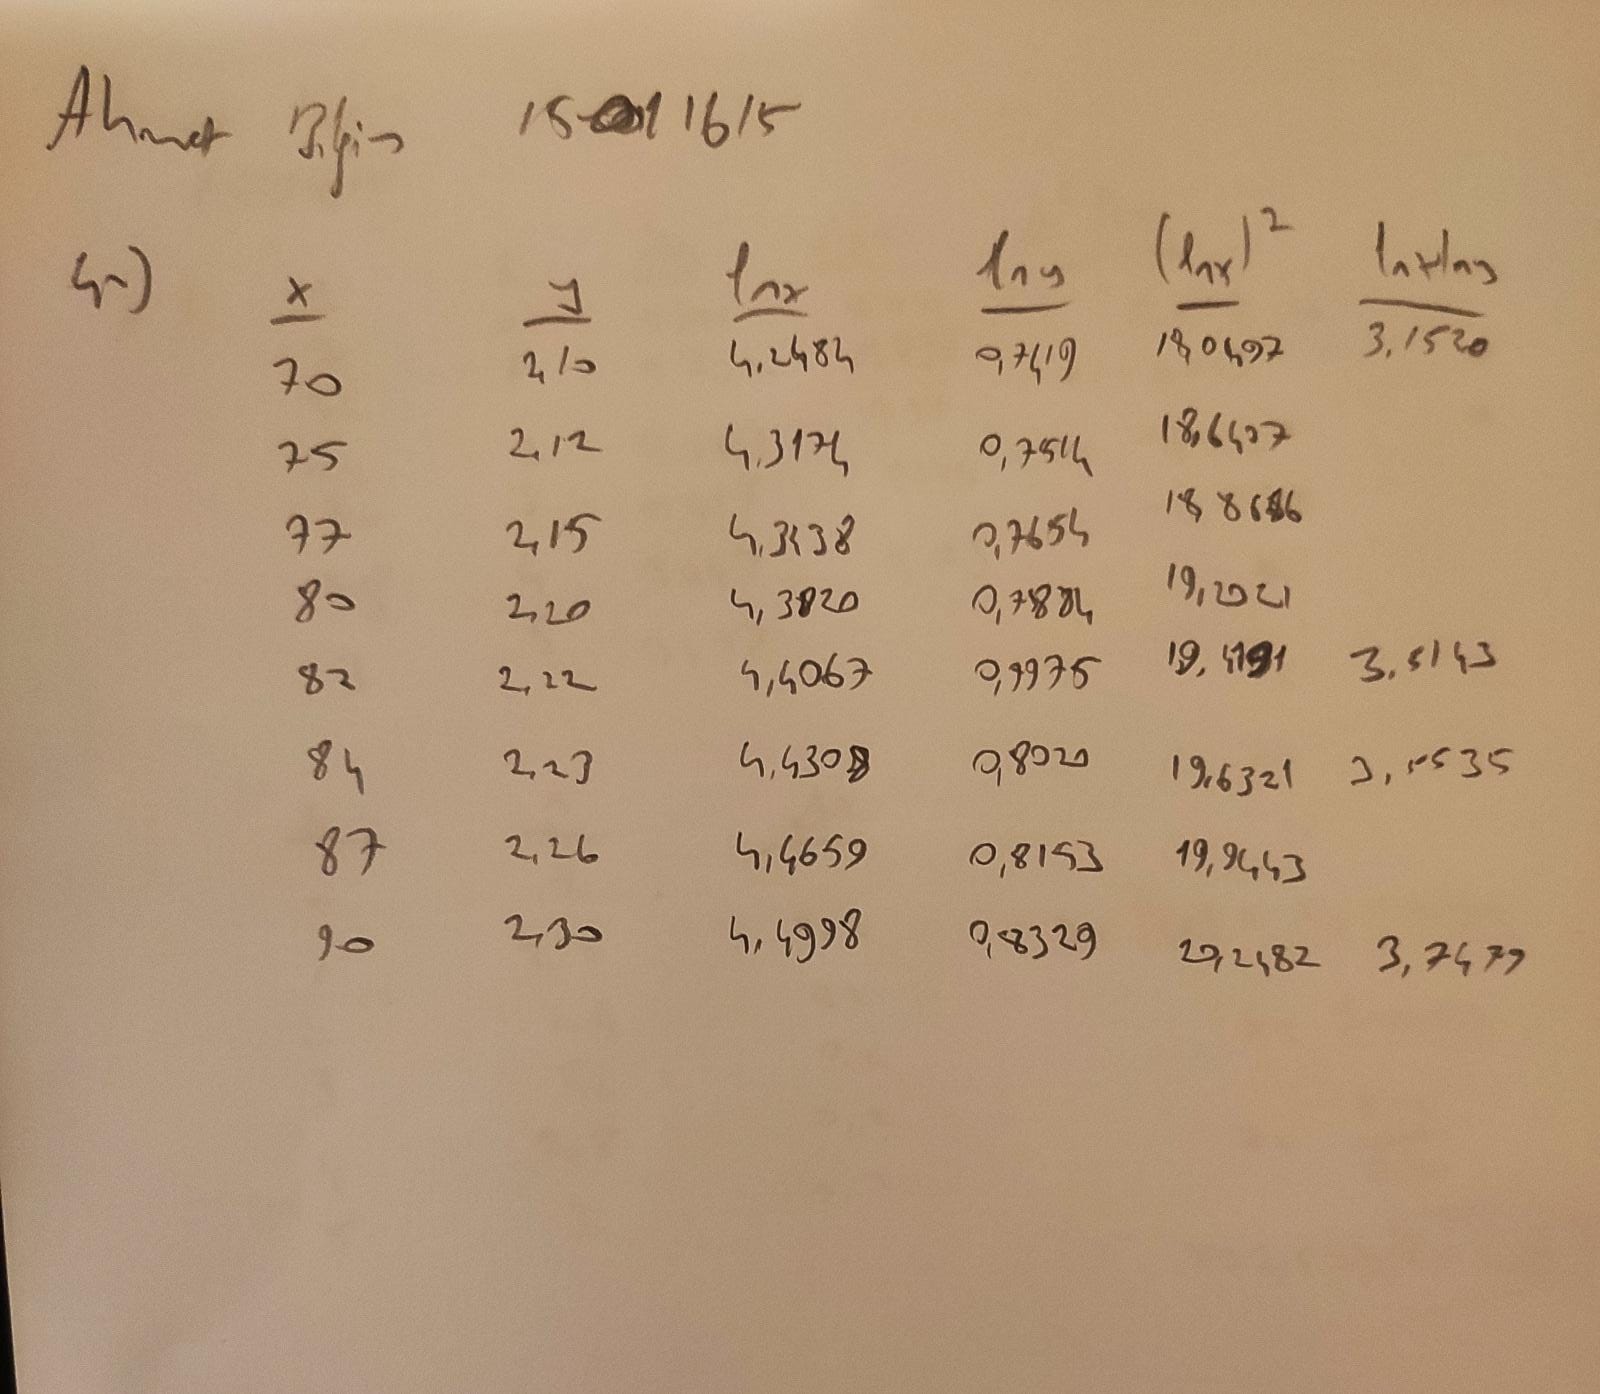 Ahmet Bilgin 15011615
4-)
x y lnx lny (lnx)² lnxlny
70 2,10 4,2484 0,7419 18,0497 3,1520
75 2,12 4,3174 0,7514 18,6407
77 2,15 4,3438 0,7654 18,8686
80 2,20 4,3820 0,7884 19,2021
82 2,22 4,4067 0,7975 19,4191 3,5143
84 2,23 4,4308 0,8020 19,6321 3,5535
87 2,26 4,4659 0,8153 19,9443
90 2,30 4,4998 0,8329 20,2482 3,7479